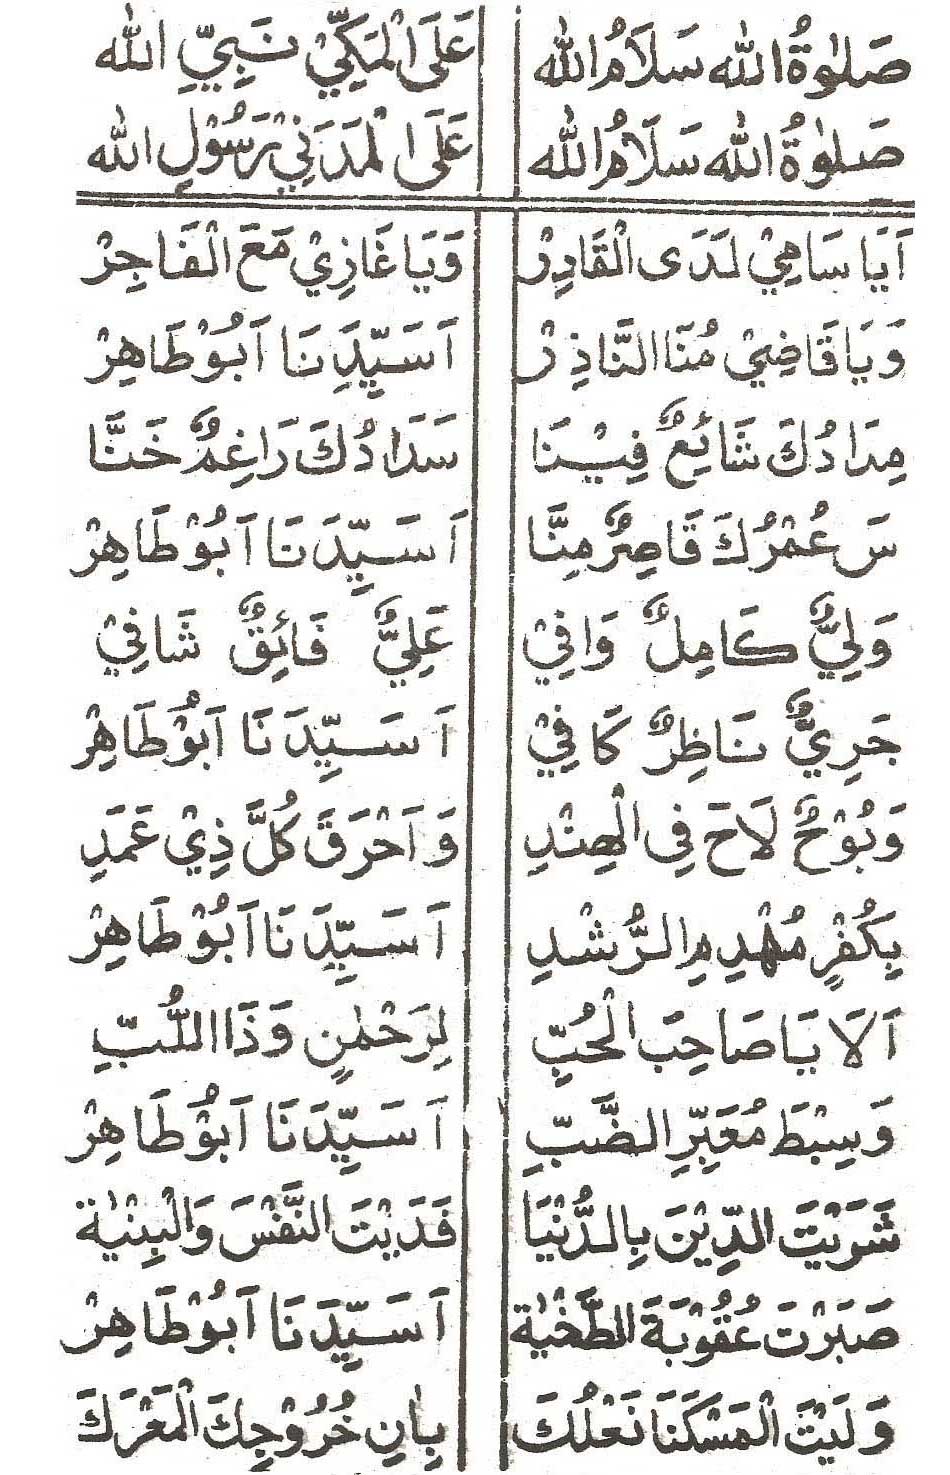 صَلٰوةُ اللّٰه سَلَامُ اللّٰه عَلَى الْمَكِّيْ نَبِيِّ اللّٰه
صَلٰوةُ اللّٰه سَلَامُ اللّٰه عَلَى الْمَدَنِيْ رَسُوْلِ اللّٰه
اَيَا سَامِيْ لَدَى الْقَادِرْ وَيَا غَازِيْ مَعَ الْفَاجِرْ
وَيَا قَاضِيْ مُنَا النَّاذِرْ اَسَيِّدَنَا اَبُوْ طَاهِرْ
مِدَادُكَ شَائِعٌ فِيْنَا سَدَادُكَ رَاغِمٌ خَنَّا
سَ عُمْرُكَ قَاصِرٌ مِنَّا اَسَيِّدَنَا اَبُوْ طَاهِرْ
وَلِيٌّ كَامِلٌ وَافِيْ عَلِيٌّ فَائِقٌ شَافِيْ
جَرِيٌّ نَاظِرٌ كَافِيْ اَسَيِّدَنَا اَبُوْ طَاهِرْ
وَبُوْحٌ لَاحَ فِي الْهِنْدِ وَاَحْرَقَ كُلَّ ذِيْ عَمَدِ
بِكُفْرٍ مُهْدِمِ الرُّشْدِ اَسَيِّدَنَا اَبُوْ طَاهِرْ
اَلَا يَا صَاحِبَ الْحُبِّ لِرَحْمٰنٍ وَذَا اللُّبِّ
وَسِبْطَ مُعَبِّرِ الضَّبِّ اَسَيِّدَنَا اَبُوْ طَاهِرْ
شَرَيْتَ الدِّيْنَ بِالدُّنْيَا فَدَيْتَ النَّفْسَ وَالْبِنْيٰة
صَبَرْتَ عُقُوْبَةَ الطَّخْيٰة اَسَيِّدَنَا اَبُوْ طَاهِرْ
وَلَيْتَ الْمَسْكَنَا نَعْلُكَ بِاٰنِ خُرُوْجِكَ الْمَعْرَكَ